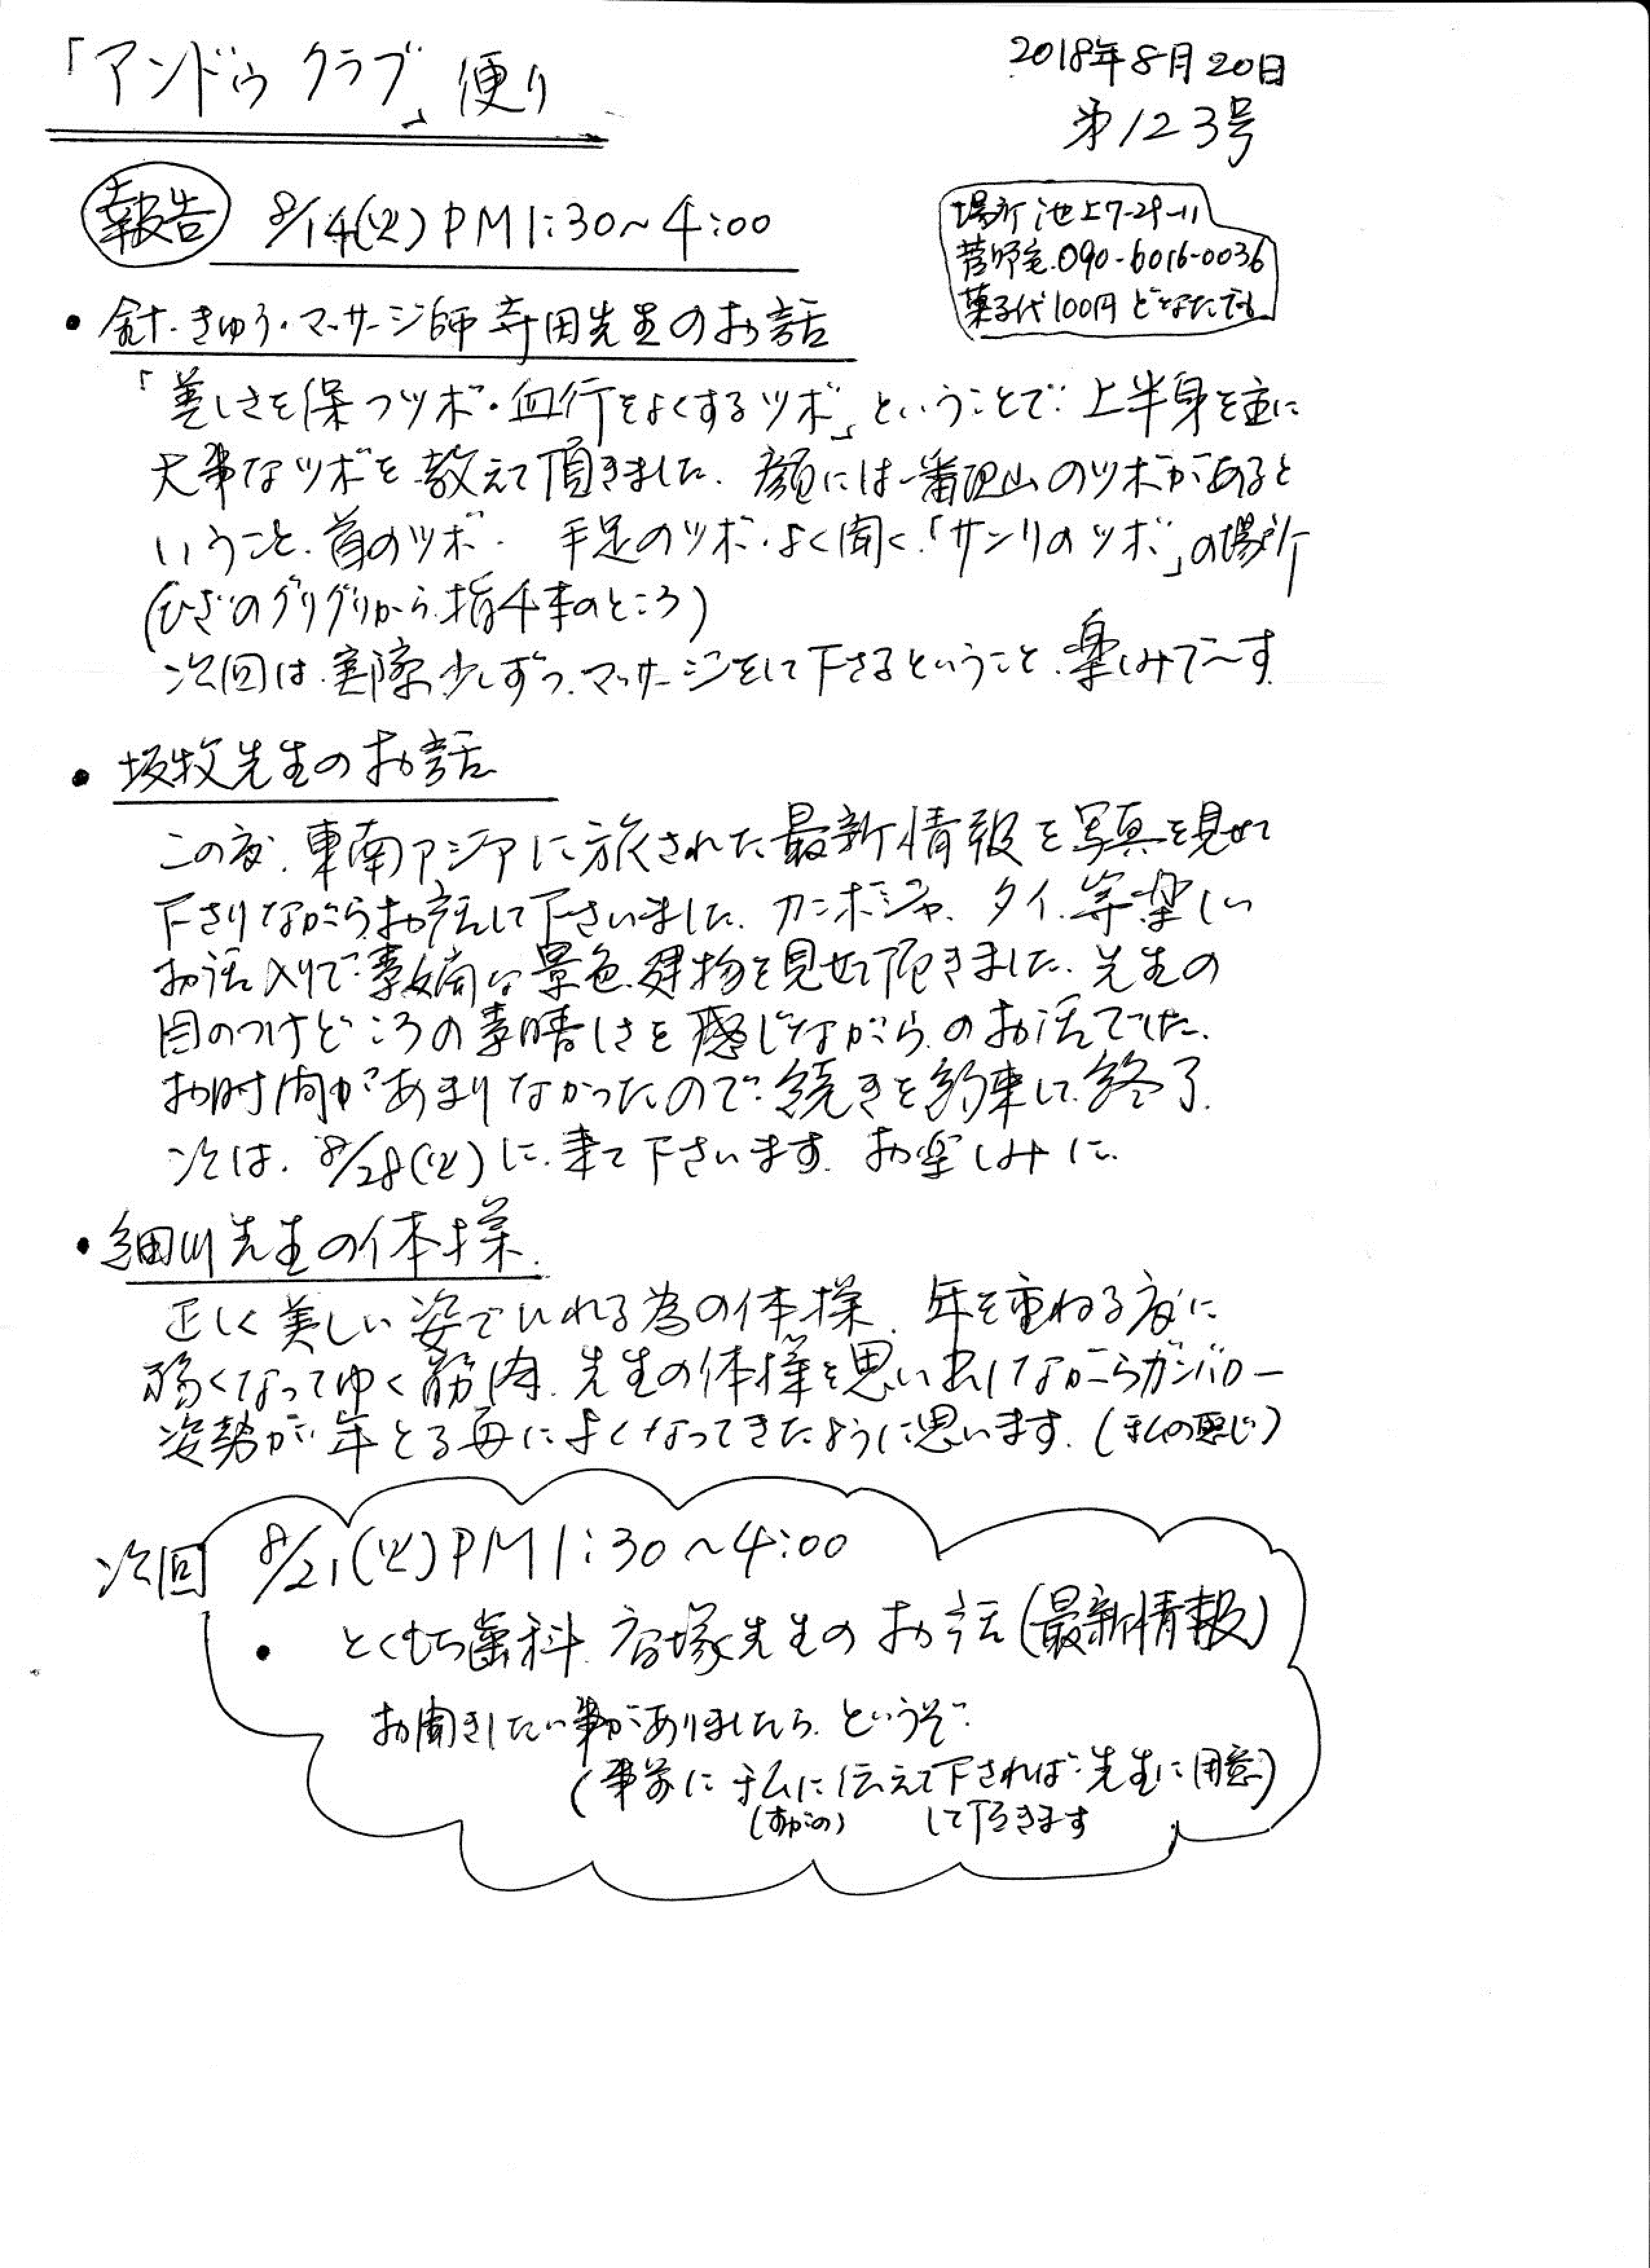 「アンドゥクラブ」便り
2018年8月20日
第123号
報告 8/14(火)PM1:30～4:00
場所 池上7-29-11
菅野宅.090-6016-0036
菓子代100円 どなたでも
・針.きゅう・マッサージ師 寺田先生のお話
「美しさを保つツボ・血行をよくするツボ」ということで.上半身を主に
大事なツボを教えて頂きました.顔には一番沢山のツボがあると
いうこと.首のツボ. 手足のツボ.よく聞く.「サンリのツボ」の場所
(ひざのグリグリから.指4本のところ)
次回は.実際少しずつ.マッサージをして下さるということ.楽しみで～す.
・坂牧先生のお話
この度.東南アジアに旅された最新情報を写真を見せて
下さりながらお話して下さいました.カンボジヤ.タイ.等楽しい
お話入りで.素敵な景色.建物を見せて頂きました.先生の
目のつけどころの素晴しさを感じながら.のお話でした.
お時間があまりなかったので.続きを約束して.終了.
次は.8/28(火)に.来て下さいます.お楽しみに.
・細川先生の体操.
正しく美しい姿でいれる為の体操.年を重ねる度に
弱くなってゆく筋肉.先生の体操を思い出しながらガンバロー
姿勢が.年とる毎によくなってきたように思います.(私の感じ)
次回 8/21(火)PM1:30～4:00
・とくもち歯科. 先生のお話(最新情報)
お聞きしたい事がありましたら.どうぞ.
(事前に私に伝えて下されば.先生に用意)
(すがの) して頂きます